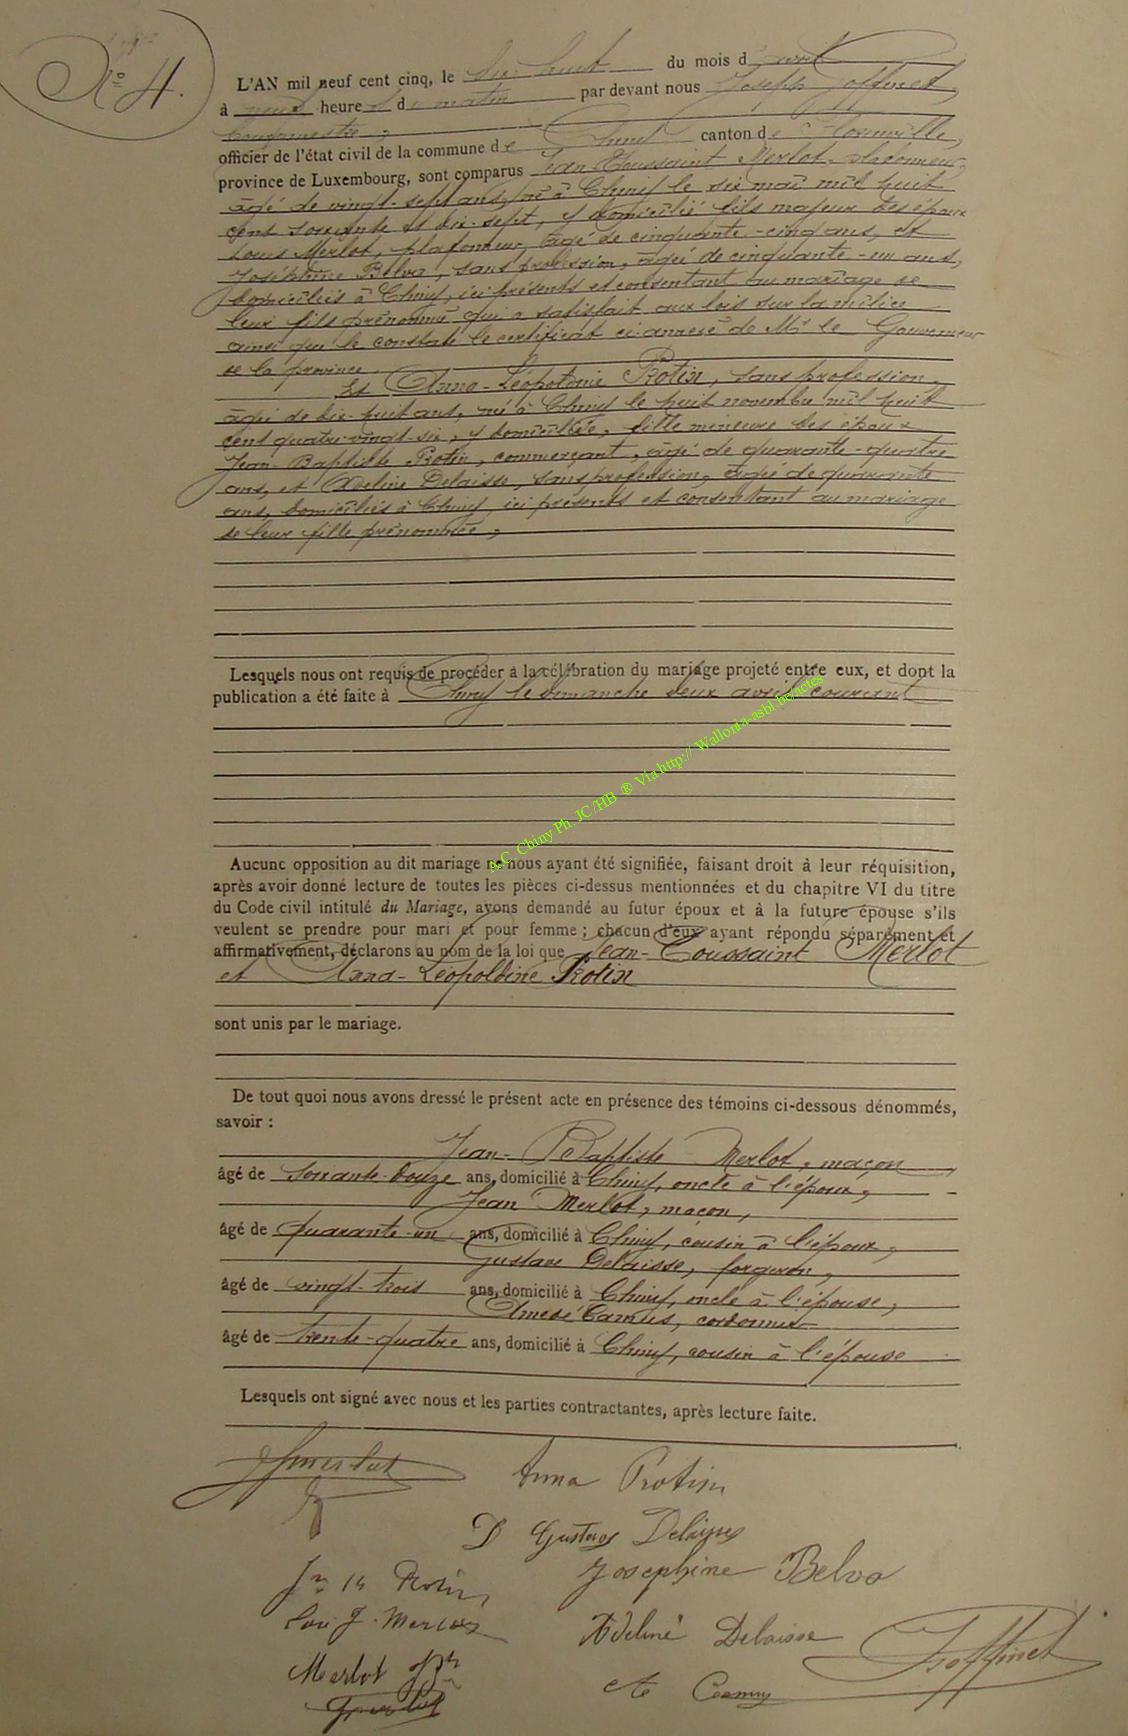 N° 4.
L'AN mil neuf cent cinq, le dix-huit du mois d'avril
à neuf heures du matin par devant nous Joseph Goffinet,
bourgmestre,
officier de l'état civil de la commune de Chiny canton de Florenville,
province de Luxembourg, sont comparus Jean Toussaint Merlot, plafonneur,
âgé de vingt-sept ans, né à Chiny le six mai mil huit
cent soixante et dix-sept, y domicilié fils majeur des époux
Louis Merlot, plafonneur, âgé de cinquante-cinq ans, et
Joséphine Belva, sans profession, âgée de cinquante-un ans,
domiciliés à Chiny, ici présents et consentant au mariage de
leur fils prénommé qui a satisfait aux lois sur la milice
ainsi que le constate le certificat ci-annexé de Mr le Gouverneur
de la province.
Et Anna-Léopoldine Rotin, sans profession,
âgée de dix-huit ans, né à Chiny le huit novembre mil huit
cent quatre-vingt-six, y domiciliée, fille mineure des époux
Jean-Baptiste Rotin, commerçant, âgé de quarante-quatre
ans, et Adeline Delaisse, sans profession, âgée de quarante
ans, domiciliés à Chiny, ici présents et consentant au mariage
de leur fille prénommée,
Lesquels nous ont requis de procéder à la célébration du mariage projeté entre eux, et dont la
publication a été faite à Chiny le dimanche deux avril courant
A.C. Chiny Ph. JC/HB ® Via http:// Wallonia-asbl.be/actes
Aucune opposition au dit mariage ne nous ayant été signifiée, faisant droit à leur réquisition,
après avoir donné lecture de toutes les pièces ci-dessus mentionnées et du chapitre VI du titre
du Code civil intitulé du Mariage, avons demandé au futur époux et à la future épouse s'ils
veulent se prendre pour mari et pour femme ; chacun d'eux ayant répondu séparément et
affirmativement, déclarons au nom de la loi que Jean-Toussaint Merlot
et Anna-Léopoldine Rotin
sont unis par le mariage.
De tout quoi nous avons dressé le présent acte en présence des témoins ci-dessous dénommés,
savoir :
Jean-Baptiste Merlot, maçon,
âgé de soixante-douze ans, domicilié à Chiny, oncle à l'époux,
Jean Merlot, maçon,
âgé de quarante-un ans, domicilié à Chiny, cousin à l'époux,
Gustave Delaisse, forgeron,
âgé de vingt-trois ans, domicilié à Chiny, oncle à l'épouse,
Amedé Camus, cordonnier
âgé de trente-quatre ans, domicilié à Chiny, cousin à l'épouse
Lesquels ont signé avec nous et les parties contractantes, après lecture faite.
Anna Rotin
Gustave Delaisse
Josephine Belva
Adeline Delaisse
Merlot
Goffinet